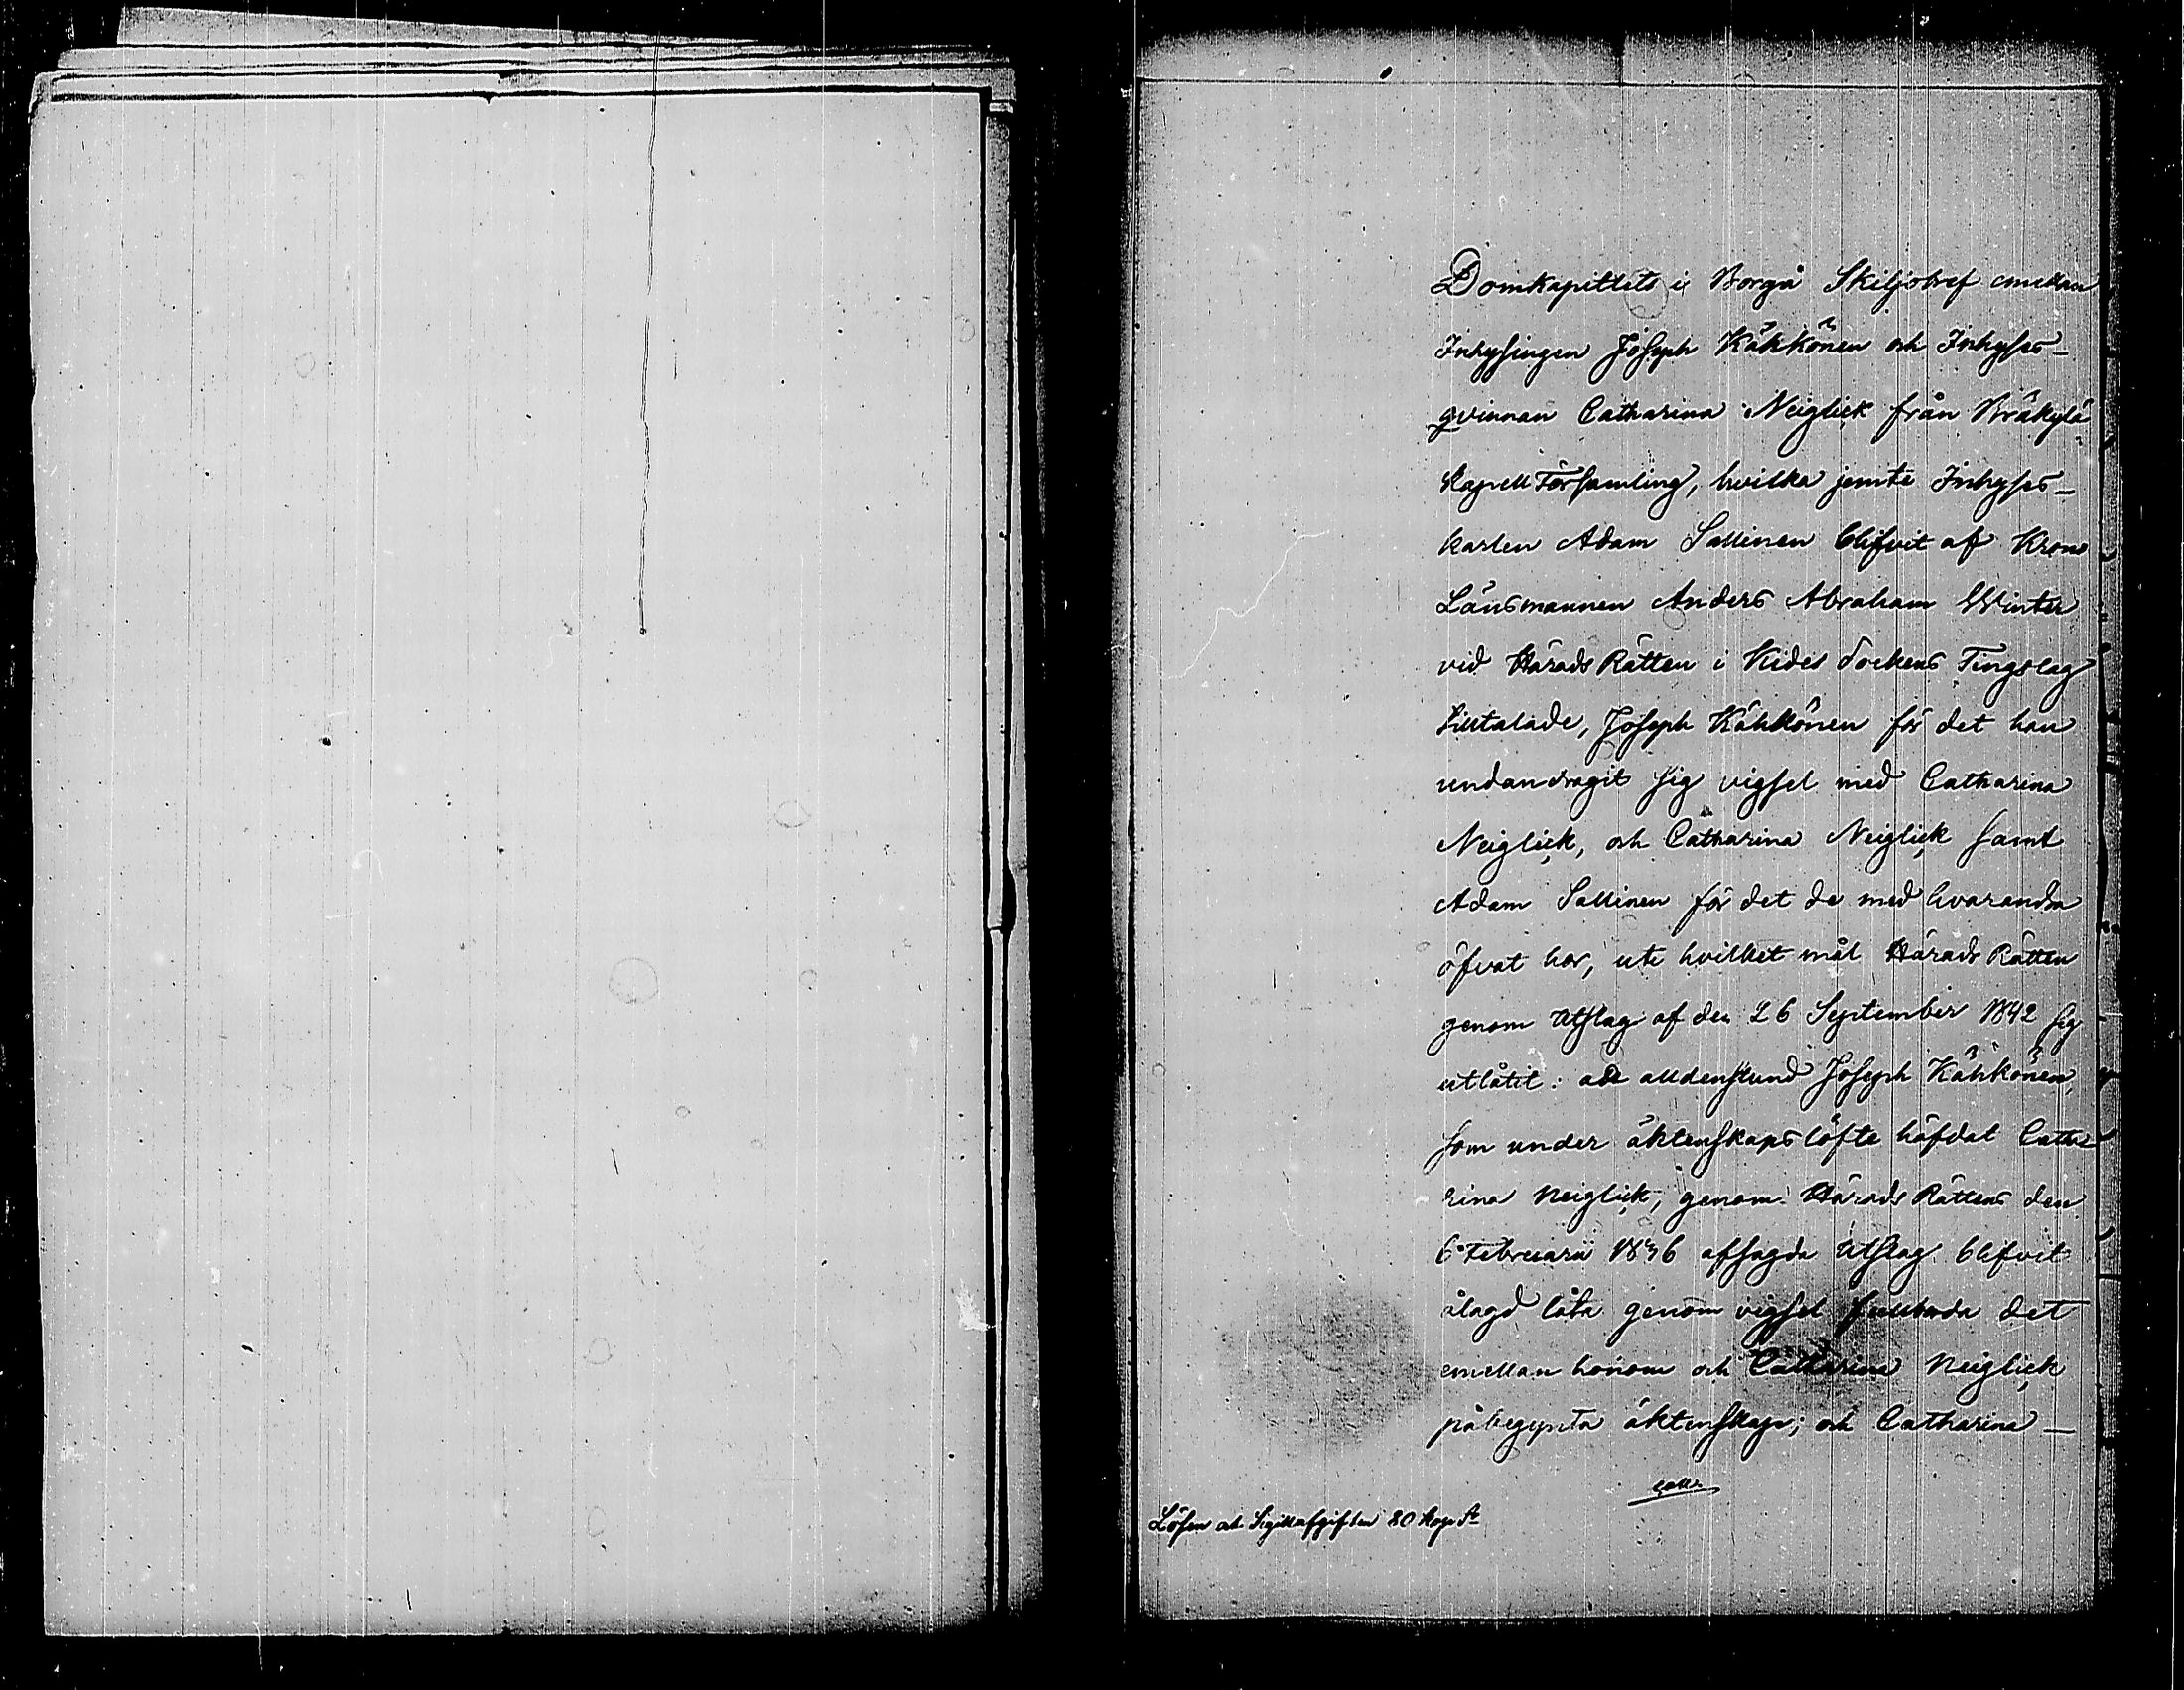 Domkapitlets i Borgå Skiljobref emellan
Inhysingen Joseph Kähkönen och Inhyses-
qvinnan Catharina Neiglick från Bräkylä
Kapell Församling, hvilka jemte Inhyses-
karlen Adam Sallinen blifvit af Krono
Länsmannen Anders Abraham Winter
vid Härads Rätten i Kides Sockens Tingslag
tilltalade, Joseph Kähkönen för det han
undandragit sig vigsel med Catharina
Neiglick, och Catharina Neiglick samt
Adam Sallinen för det de med hvarandra
öfvat hor, uti hvilket mål Härads Rätten
genom Utslag af den 26 September 1842 sig
utlåtit: att alldenstund Joseph Kähkönen,
som under äktenskapslöfte häfdat Catha
rina Neiglick, genom Härads Rättens den
6 Februarii 1836 afsagda Utslag blifvit
ålagd låta genom vigsel fullborda det
emellan honom och Catharina Neiglick
påbegynta äktenskap; och Catharina —
Lösen och Sigillafgiften 80 kop. Sr